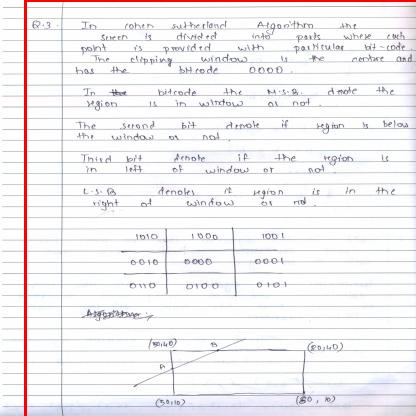 Q.3. In cohen sutherland Algorithm the
screen is divided into parts where each
point is provided with particular bit-code.
The clipping window is the centre and
has the bitcode 0000.
In the bitcode the M.S.B. dnote the
region is in window or not.
The second bit denote if region is below
the window or not.
Third bit denote if the region is
in left of window or not.
L.S.B denotes if region is in the
right of window or not.
1010 1000 1001
0010 0000 0001
0110 0100 0101
Algorithm:
(50,40) B (80,40)
A
(50,10) (80,10)